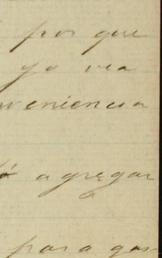 por que
yo vea
veniencia
agregar
para gas